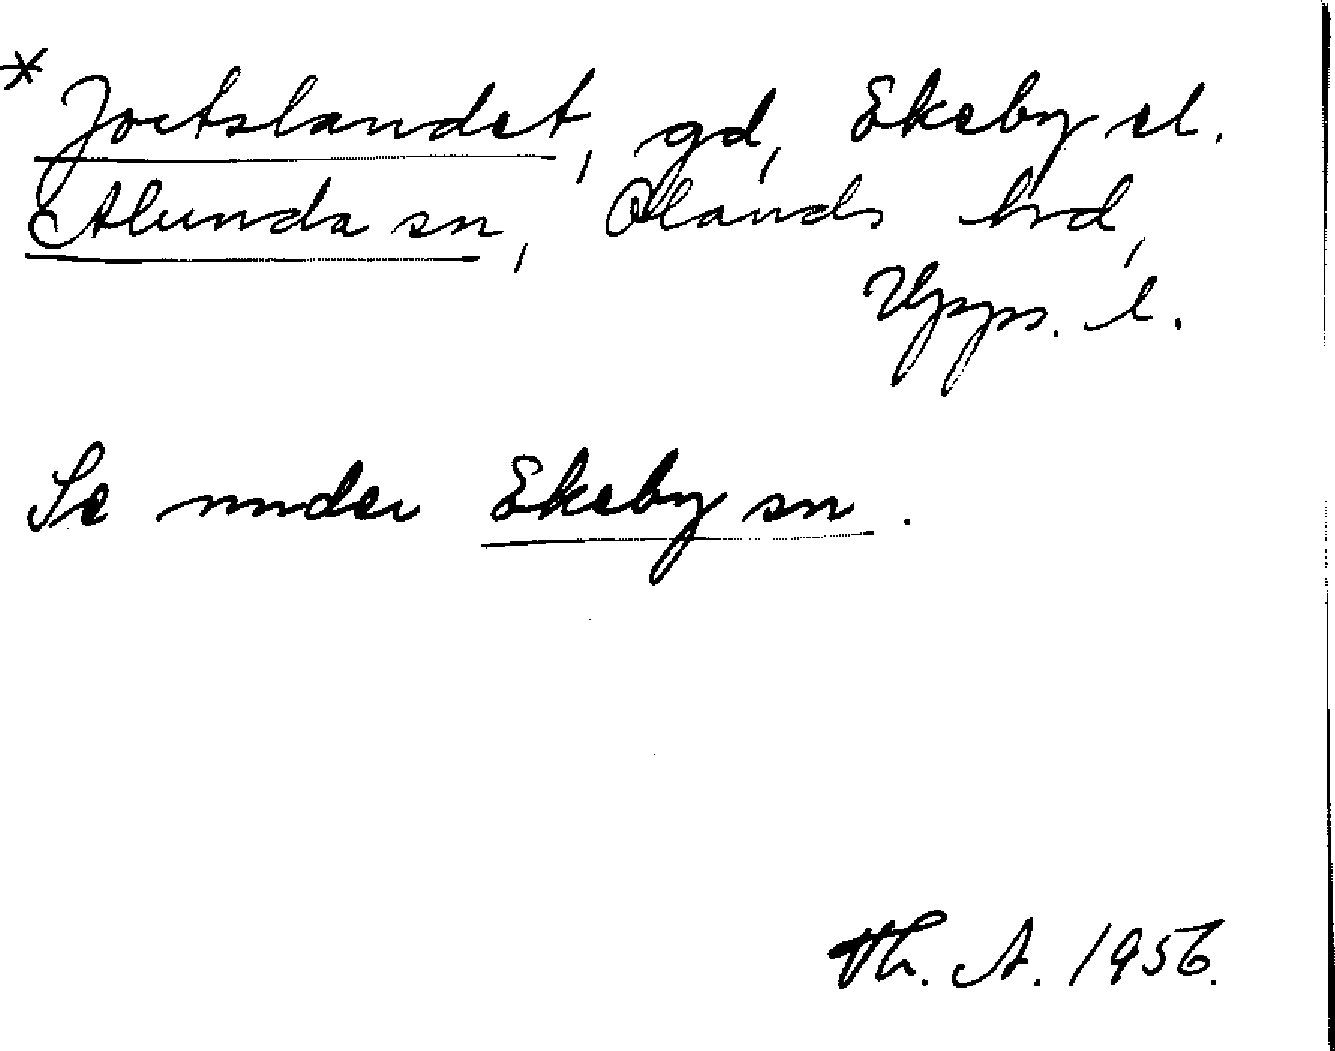 * Joetslandet, gd, Ekeby el.
Alunda sn, Olands hrd,
Upps. l.
Se under Ekeby sn.
Th. A. 1956.